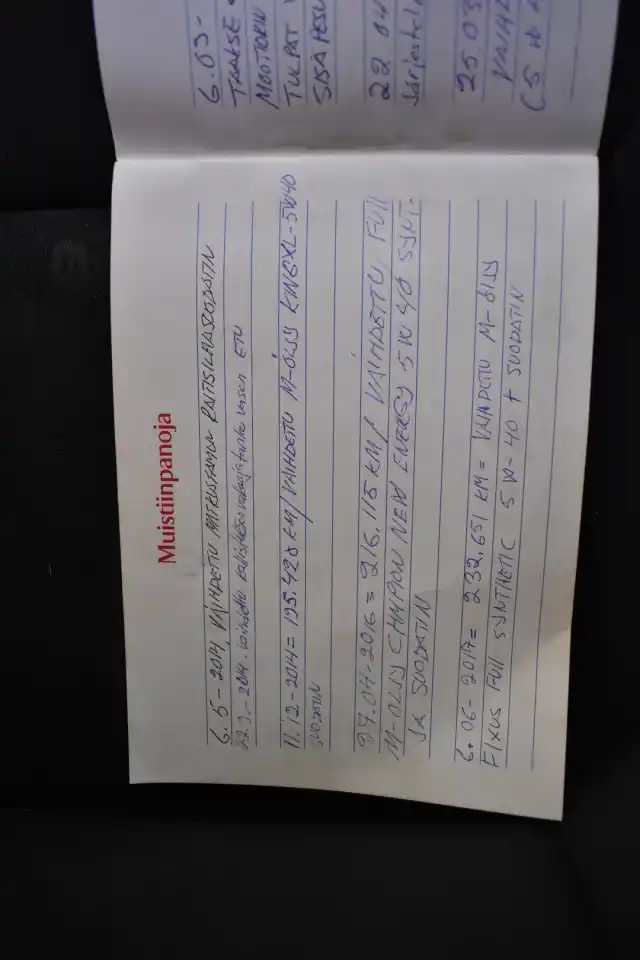 Muistiinpanoja
6.5-2014, VAIHDETTU MATKUSTAMON RAITISILMASUODATIN
22.9.-2014. Vaihdettu vasen ETU
11.12-2014= 195.428 KM/ VAIHDETTU M-ÖLJY KINGXL-5W40
SUODATIN
27.04-2016= 216.115 KM/ VAIHDETTU FULL
M-ÖLJY CHMPION NEW ENERGY 5W40 SYNT.
JA SUODATIN
6.06-2017= 232.651 KM= VAIHDETTU M-ÖLJY
FIXUS FULL SYNTHETIC 5W-40 + SUODATIN
6.03-
TAAKSE
MOOTTORIN
TULPAT
SISÄPESU
22.04
Järjestel
25.03
VAIHD
(5W